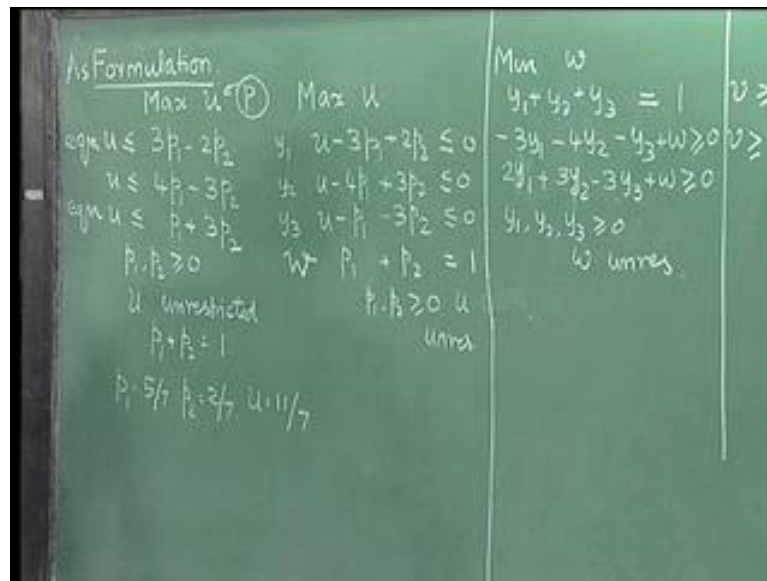 As Formulation
Max u P
eqn u ≤ 3p₁ - 2p₂
u ≤ 4p₁ - 3p₂
eqn u ≤ p₁ + 3p₂
p₁, p₂ ≥ 0
u unrestricted
p₁ + p₂ = 1
p₁ = 5/7 p₂ = 2/7 u = 11/7
Max u
y₁ u - 3p₁ + 2p₂ ≤ 0
y₂ u - 4p₁ + 3p₂ ≤ 0
y₃ u - p₁ - 3p₂ ≤ 0
W p₁ + p₂ = 1
p₁, p₂ ≥ 0 u
unres
Min w
y₁ + y₂ + y₃ = 1
-3y₁ - 4y₂ - y₃ + w ≥ 0
2y₁ + 3y₂ - 3y₃ + w ≥ 0
y₁, y₂, y₃ ≥ 0
w unres.
v ≥
v ≥